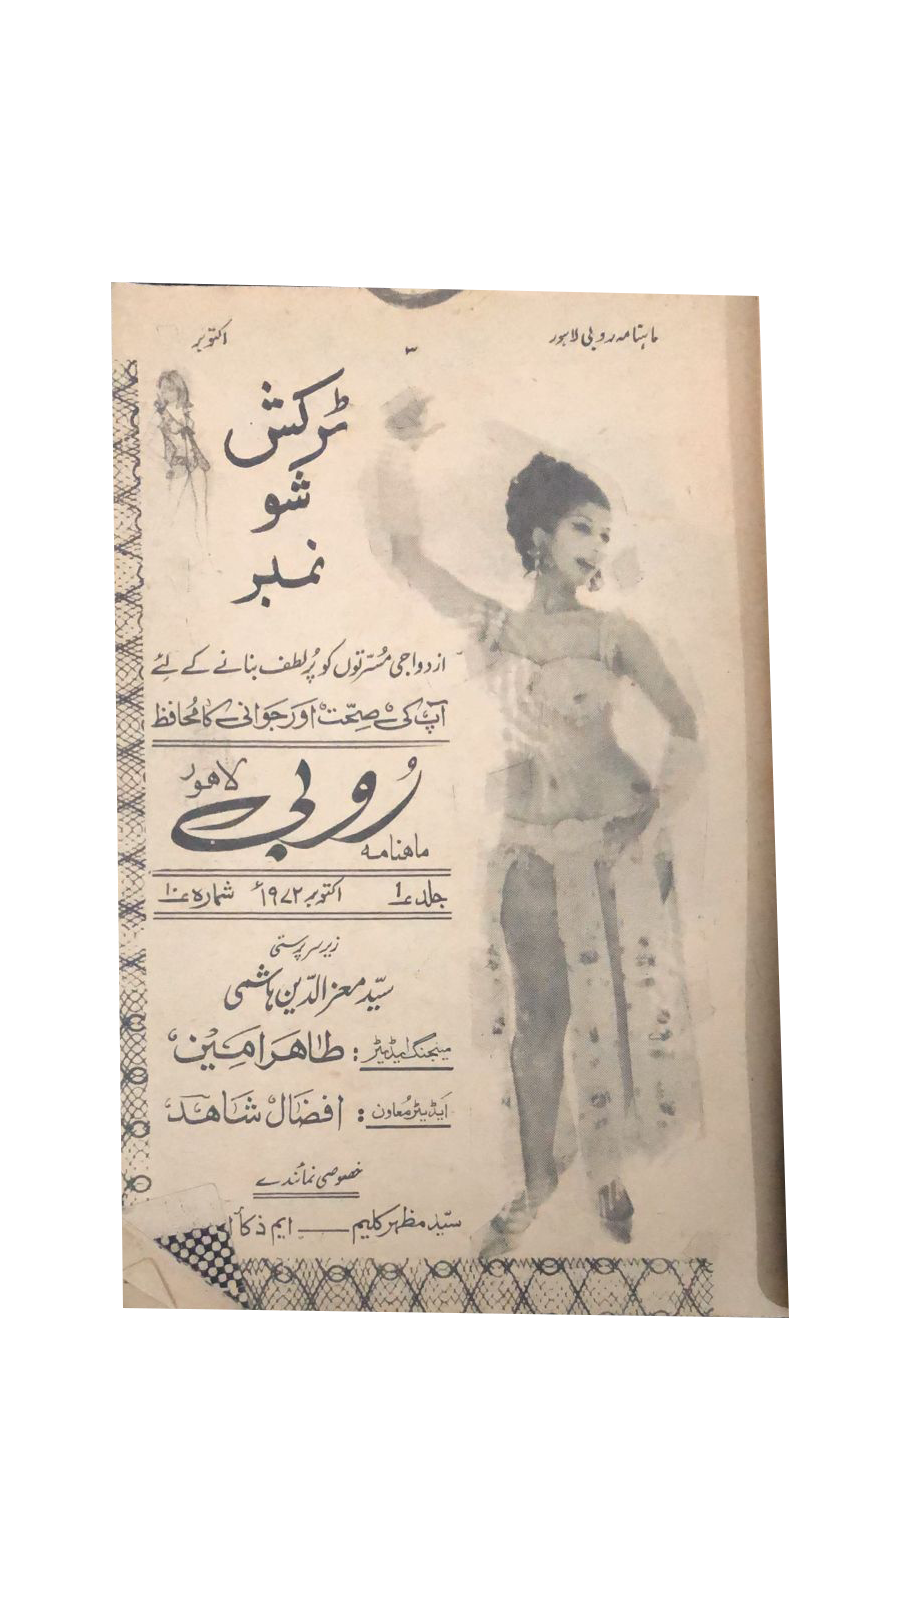 ماہنامہ روبی لاہور
۳
اکتوبر
ٹرکش
شو
نمبر
ازدواجی مسرّتوں کو پُر لطف بنانے کے لئے
آپ کی صحّت اور جوانی کا مُحافظ
رُوبی لاھور
ماھنامہ
جلد ؏۱ اکتوبر ۱۹۷۲ء شمارہ ؏۱۰
زیر سرپرستی
سیّد معز الدّین ہاشمی
مینجنگ ایڈیٹر : طاھر امین
ایڈیٹر معاون : افضال شاھد
خصوصی نمائندے
سیّد مظہر کلیم — ایم ذکأ